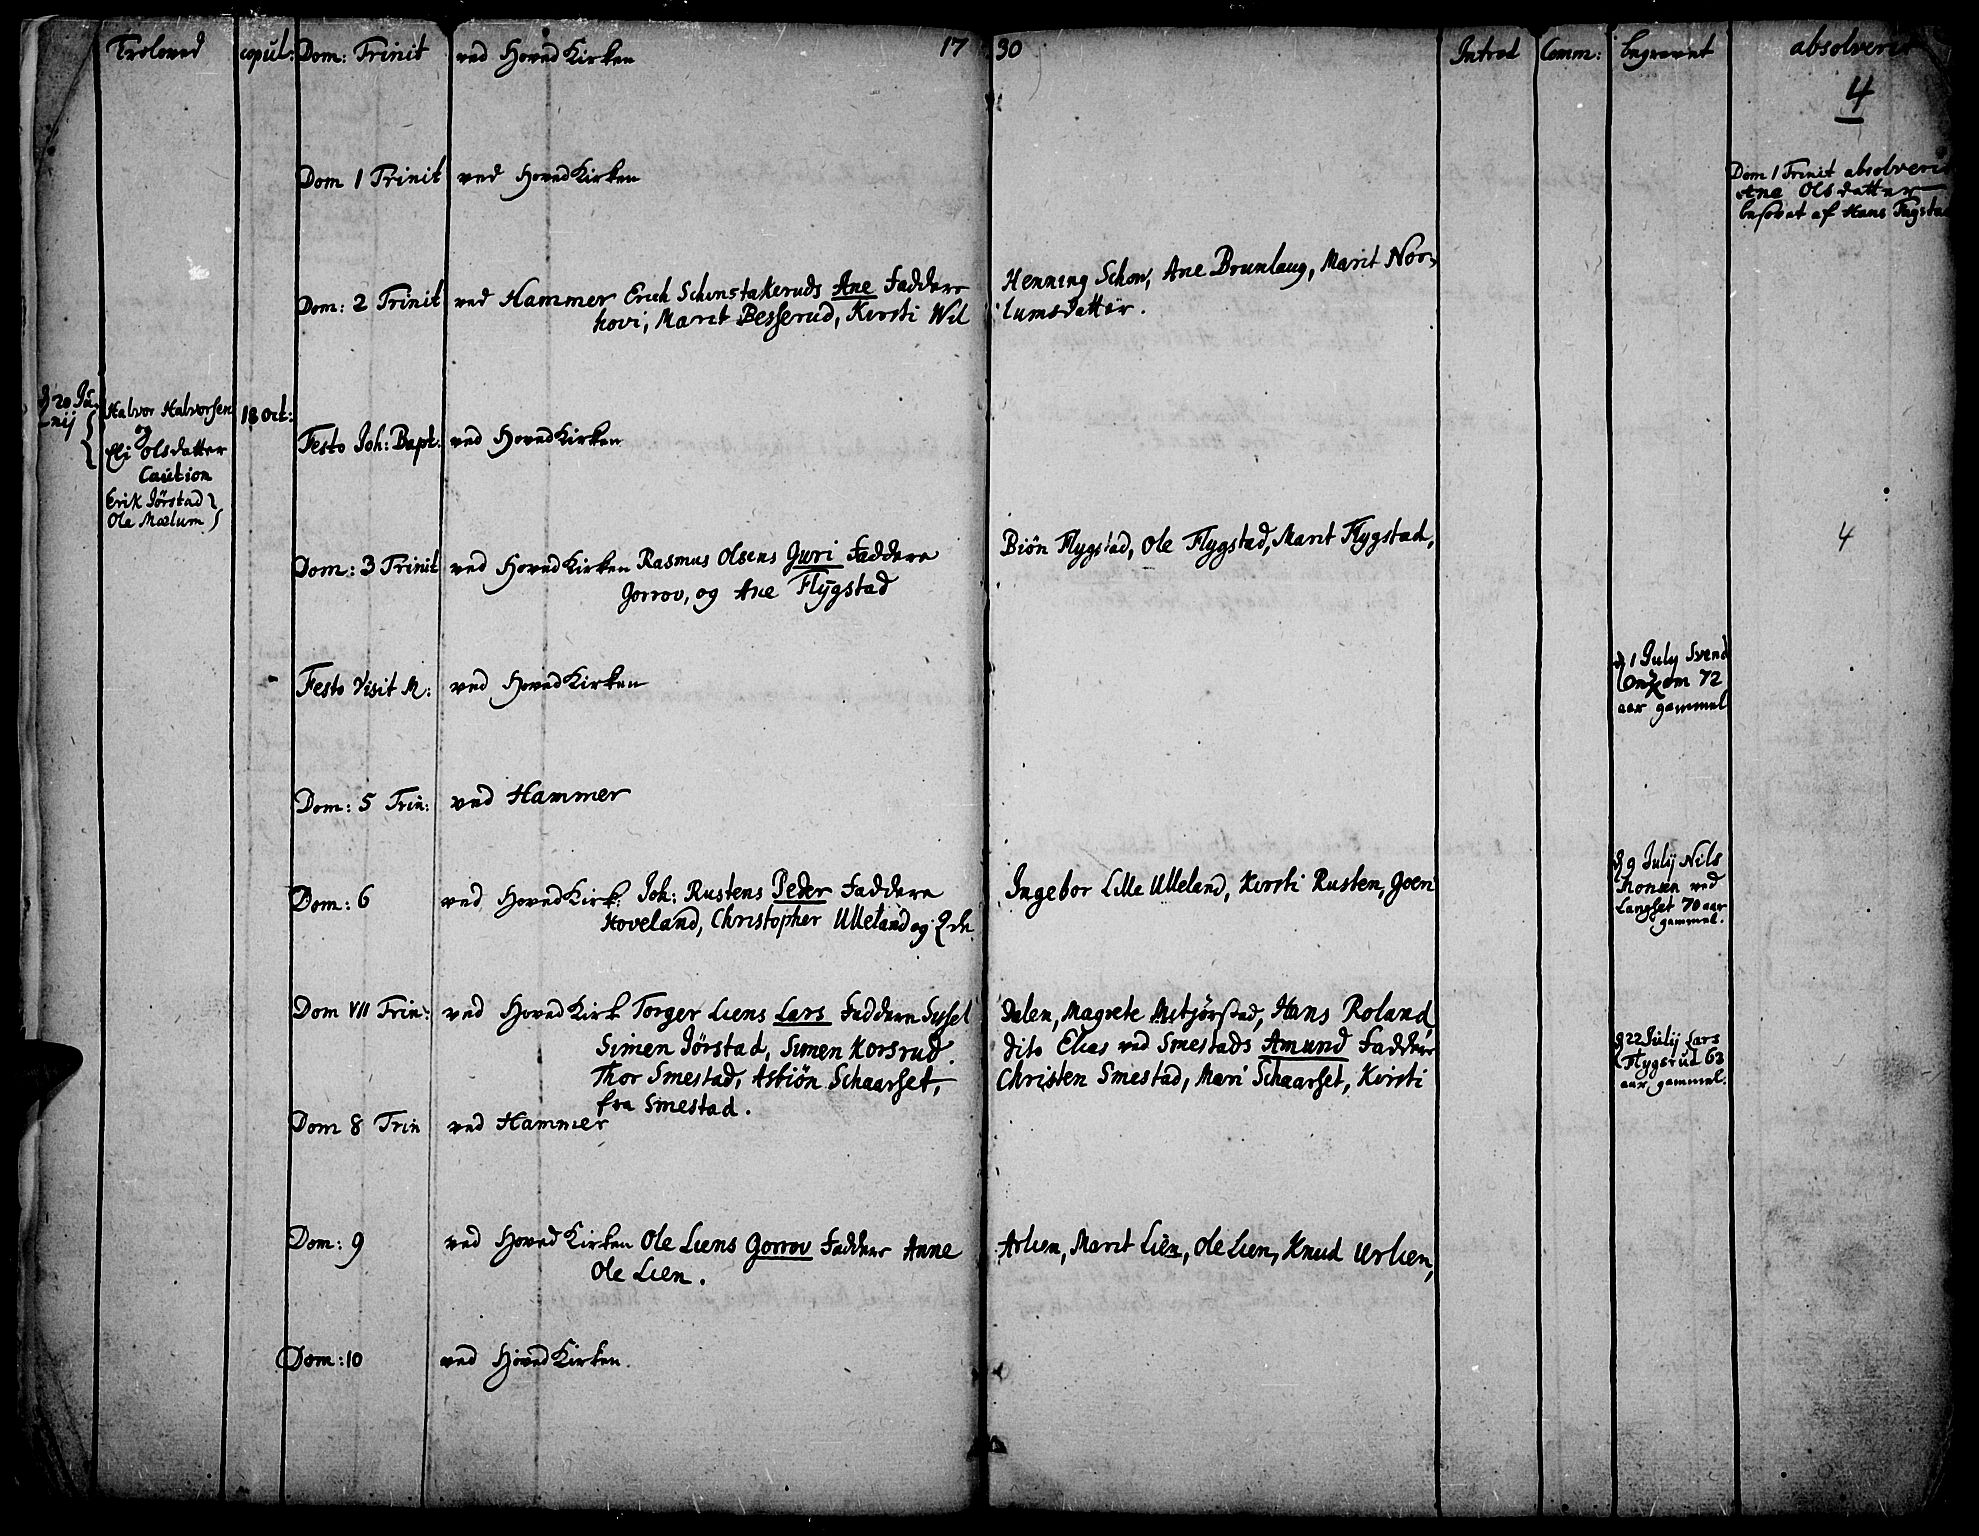 Troloved copul: Dom: Trinit ved Hoved Kirken 17 30 Introd Comm: begravet absolverit
4
Dom 1 Trinit ved Hoved Kirken
Dom 1 Trinit absolverit
Ane Olsdatter
besovet af Hans Flygstad
Dom: 2 Trinit ved Hammer Erich Schonstakeruds Ane Faddere Henning Schou, Ane Brunlaug, Marit Nor,
hovi, Marit Besserud, Kirsti Wil lumsdatter.
20 Ju,
nij
Halvor Halvorsen 18 Oct:
og
Eli Olsdatter
Caution
Erik Jörstad
Ole Mælum
Festo Joh: Bapt: ved Hoved Kirken
Dom: 3 Trinit ved Hoved Kirken Rasmus Olsens Guri Faddere Biön Flygstad, Ole Flygstad, Marit Flygstad, 4
Gorrov, og Ane Flygstad
Festo Visit M: ved Hoved Kirken
1 July Svend
om 72
aar gammel
Dom: 5 Trin: ved Hammer
Dom: 6 ved Hoved Kirk: Joh: Rustens Peder Faddere Ingebor Lille Ulleland, Kirsti Rusten, Goeri
Hoveland, Christopher Ulleland og
9 Julij Nils
Thonsen ved
Langset 70 aar
gammel.
Dom VII Trin: ved Hoved Kirk Torger Liens Lars Faddere Sysel Dalen, Magrete Mitjörstad, Hans Roland
Simen Jörstad, Simen Korsrud. dito Elias ved Smestads Amund Faddere
Thor Smestad, Asbiön Schaarset, Christen Smestad, Mari Schaarset, Kirsti
fra Smestad.
22 Julij Lars
Flygsrud 63
aar gammel.
Dom 8 Trin ved Hammer
Dom: 9 ved Hoved Kirken Ole Liens Gorrov Faddere Anne Arlien, Marit Lien, Ole Lien, Knud Urlien,
Ole Lien.
Dom: 10 ved Hoved Kirken.